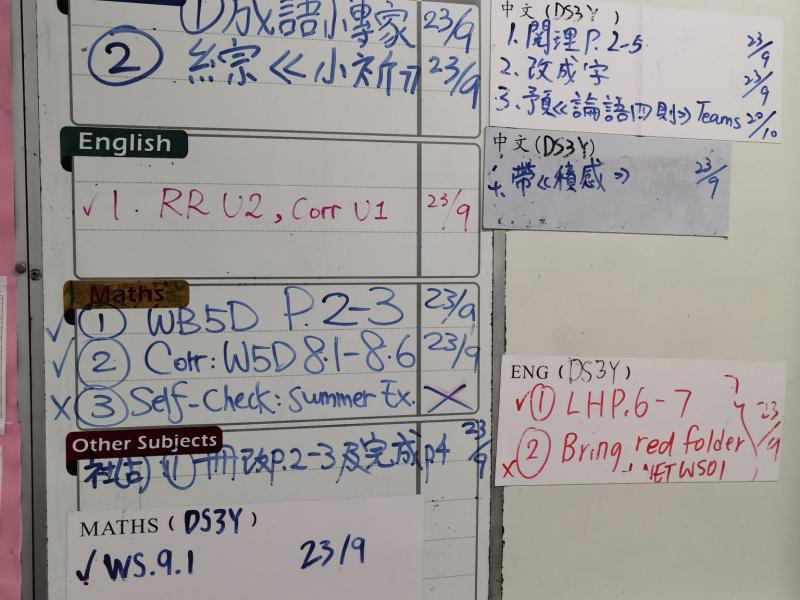 ① 成語小專家 23/9
② 綜《小祈》 23/9
English
✓ 1. RR U2, Corr U1 23/9
Maths
✓ ① WB5D P.2-3 23/9
✓ ② Corr: W5D 8.1-8.6 23/9
X ③ Self-Check: Summer Ex. X
Other Subjects
冊改P.2-3及完成p4 23/9
MATHS (DS3Y)
✓ WS.9.1 23/9
中文 (DS3Y)
1. 閱理 P.2-5 23/9
2. 改成字 23/9
3. 預《論語四則》Teams 20/10
中文 (DS3Y)
4. 帶《積感》 23/9
ENG (DS3Y)
✓ ① LHP.6-7
X ② Bring red folder 23/9
NETWS01